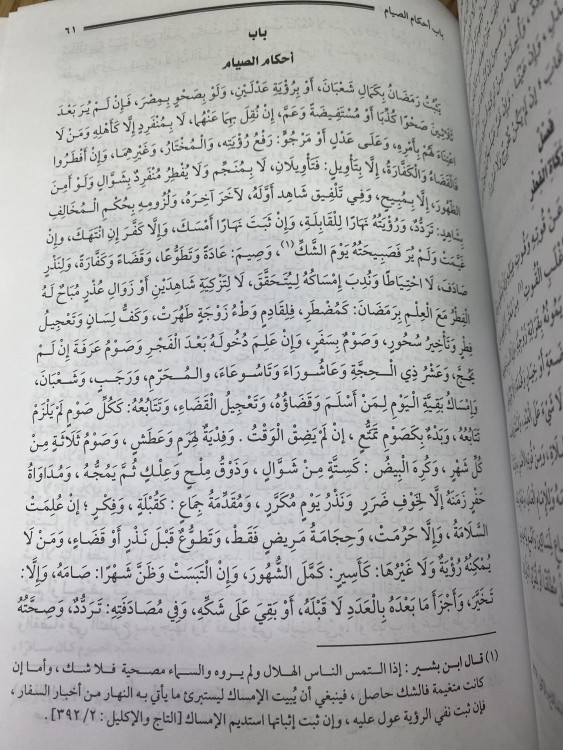 باب أحكام الصيام
٦١
باب
أحكام الصيام
يَثْبُتُ رَمَضَانُ بِكَمَالِ شَعْبَانَ، أَوْ بِرُؤْيَةِ عَدْلَيْنِ، وَلَوْ بِصَحْوٍ بِمِصْرَ، فَإِنْ لَمْ يُرَ بَعْدَ
ثَلَاثِينَ صَحْوًا كُذِّبَا أَوْ مُسْتَفِيضَةٍ وَعَمَّ، إِنْ نُقِلَ بِهِمَا عَنْهُمَا، لَا بِمُنْفَرِدٍ إِلَّا كَأَهْلِهِ وَمَنْ لَا
اعْتِنَاءَ لَهُمْ بِأَمْرِهِ، وَعَلَى عَدْلٍ أَوْ مَرْجُوٍّ: رَفْعُ رُؤْيَتِهِ، وَالْمُخْتَارُ: وَغَيْرِهِمَا، وَإِنْ أَفْطَرُوا
فَالْقَضَاءُ وَالْكَفَّارَةُ، إِلَّا بِتَأْوِيلٍ: فَتَأْوِيلَانِ، لَا بِمُنَجِّمٍ وَلَا يُفْطِرُ مُنْفَرِدٌ بِشَوَّالٍ وَلَوْ أَمِنَ
الظُّهُورَ، إِلَّا بِمُبِيحٍ، وَفِي تَلْفِيقِ شَاهِدِ أَوَّلَهُ، لِآخَرَ آخِرَهُ، وَلُزُومِهِ بِحُكْمِ الْمُخَالِفِ
بِشَاهِدٍ: تَرَدُّدٌ، وَرُؤْيَتُهُ نَهَارًا لِلْقَابِلَةِ، وَإِنْ ثَبَتَ نَهَارًا أَمْسَكَ، وَإِلَّا كَفَّرَ إِنِ انْتَهَكَ، وَإِنْ
غَيَّمَتْ وَلَمْ يُرَ فَصَبِيحَتُهُ يَوْمُ الشَّكِّ(١)، وَصِيمَ: عَادَةً وَتَطَوُّعًا، وَقَضَاءً وَكَفَّارَةً، وَلِنَذْرٍ
صَادَفَ، لَا احْتِيَاطًا وَنُدِبَ إِمْسَاكُهُ لِيُتَحَقَّقَ، لَا لِتَزْكِيَةِ شَاهِدَيْنِ أَوْ زَوَالِ عُذْرٍ مُبَاحٌ لَهُ
الْفِطْرُ مَعَ الْعِلْمِ بِرَمَضَانَ: كَمُضْطَرٍّ، فَلِقَادِمٍ وَطْءُ زَوْجَةٍ طَهُرَتْ، وَكَفُّ لِسَانٍ وَتَعْجِيلُ
فِطْرٍ وَتَأْخِيرُ سُحُورٍ، وَصَوْمٌ بِسَفَرٍ، وَإِنْ عَلِمَ دُخُولَهُ بَعْدَ الْفَجْرِ وَصَوْمُ عَرَفَةَ إِنْ لَمْ
يَحُجَّ، وَعَشْرُ ذِي الْحِجَّةِ وَعَاشُورَاءَ وَتَاسُوعَاءَ، وَالْمُحَرَّمِ، وَرَجَبٍ، وَشَعْبَانَ،
وَإِمْسَاكُ بَقِيَّةِ الْيَوْمِ لِمَنْ أَسْلَمَ وَقَضَاؤُهُ، وَتَعْجِيلُ الْقَضَاءِ، وَتَتَابُعُهُ: كَكُلِّ صَوْمٍ لَمْ يَلْزَمْ
تَتَابُعُهُ، وَبَدْءٌ بِكَصَوْمِ تَمَتُّعٍ، إِنْ لَمْ يَضِقِ الْوَقْتُ. وَفِدْيَةٌ لِهَرَمٍ وَعَطَشٍ، وَصَوْمُ ثَلَاثَةٍ مِنْ
كُلِّ شَهْرٍ، وَكُرِهَ الْبِيضُ: كَسِتَّةٍ مِنْ شَوَّالٍ، وَذَوْقُ مِلْحٍ وَعِلْكٍ ثُمَّ يَمُجُّهُ، وَمُدَاوَاةُ
حَفْرٍ زَمَنَهُ إِلَّا لِخَوْفِ ضَرَرٍ وَنَذْرُ يَوْمٍ مُكَرَّرٍ، وَمُقَدِّمَةُ جِمَاعٍ: كَقُبْلَةٍ، وَفِكْرٍ؛ إِنْ عُلِمَتِ
السَّلَامَةُ، وَإِلَّا حَرُمَتْ، وَحِجَامَةُ مَرِيضٍ فَقَطْ، وَتَطَوُّعٌ قَبْلَ نَذْرٍ أَوْ قَضَاءٍ، وَمَنْ لَا
يُمْكِنُهُ رُؤْيَةٌ وَلَا غَيْرُهَا: كَأَسِيرٍ: كَمَّلَ الشُّهُورَ، وَإِنِ الْتَبَسَتْ وَظَنَّ شَهْرًا: صَامَهُ، وَإِلَّا:
تَخَيَّرَ، وَأَجْزَأَ مَا بَعْدَهُ بِالْعَدَدِ لَا قَبْلَهُ، أَوْ بَقِيَ عَلَى شَكِّهِ، وَفِي مُصَادَفَتِهِ: تَرَدُّدٌ، وَصِحَّتُهُ
(١) قال ابن بشير: إذا التمس الناس الهلال ولم يروه والسماء مصحية فلا شك، وأما إن
كانت متغيمة فالشك حاصل، فينبغي أن يُبيت الإمساك ليستبرئ ما يأتي به النهار من أخبار السفار،
فإن ثبت نفي الرؤية عول عليه، وإن ثبت إثباتها استديم الإمساك [التاج والإكليل: ٣٩٢/٢].
فصل
زكاة الفطر